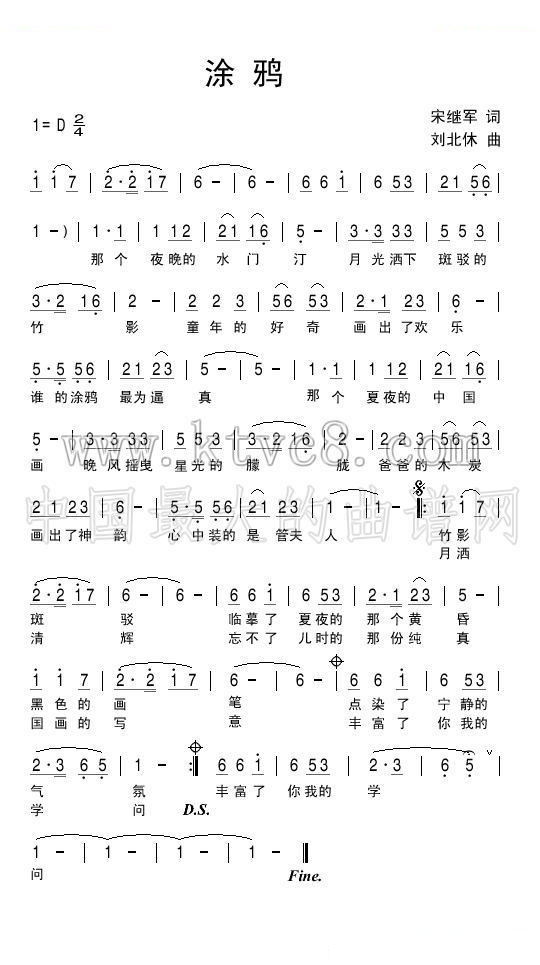 涂鸦
1=D 2/4
宋继军 词
刘北休 曲
1 1 7 | 2·2 1 7 | 6 - | 6 - | 6 6 1 | 6 5 3 | 2 1 5 6 |
1 - ) | 1·1 | 1 1 2 | 2 1 1 6 | 5 - | 3·3 3 3 | 5 5 3 |
那 个 夜晚的 水 门 汀 月光洒下 斑驳的
3·2 1 6 | 2 - | 2 2 3 | 5 6 5 3 | 2·1 2 3 | 6 - |
竹 影 童年的 好 奇 画出了欢 乐
5·5 5 6 | 2 1 2 3 | 5 - | 5 - | 1·1 | 1 1 2 | 2 1 1 6 |
谁的涂鸦 最为逼 真 那 个 夏夜的 中 国
5 - | 3·3 3 3 | 5 5 3 | 3·2 1 6 | 2 - | 2 2 3 | 5 6 5 3 |
画 晚风摇曳 星光的 朦 胧 爸爸的 木 炭
2 1 2 3 | 6 - | 5·5 5 6 | 2 1 2 3 | 1 - | 1 - ‖: 1 1 7 |
画出了神 韵 心中装的 是管夫 人 竹影
月洒
2·2 1 7 | 6 - | 6 - | 6 6 1 | 6 5 3 | 2·1 2 3 | 5 - |
斑 驳 临摹了 夏夜的 那个黄 昏
清 辉 忘不了 儿时的 那份纯 真
1 1 7 | 2·2 1 7 | 6 - | 6 - | 6 6 1 | 6 5 3 |
黑色的 画 笔 点染了 宁静的
国画的 写 意 丰富了 你我的
2·3 6 5 | 1 - :‖ 6 6 1 | 6 5 3 | 2·3 | 6 5 |
气 氛 丰富了 你我的 学
学 问 D.S.
1 - | 1 - | 1 - | 1 - ‖
问 Fine.
www.ktvc8.com
中国最大的曲谱网